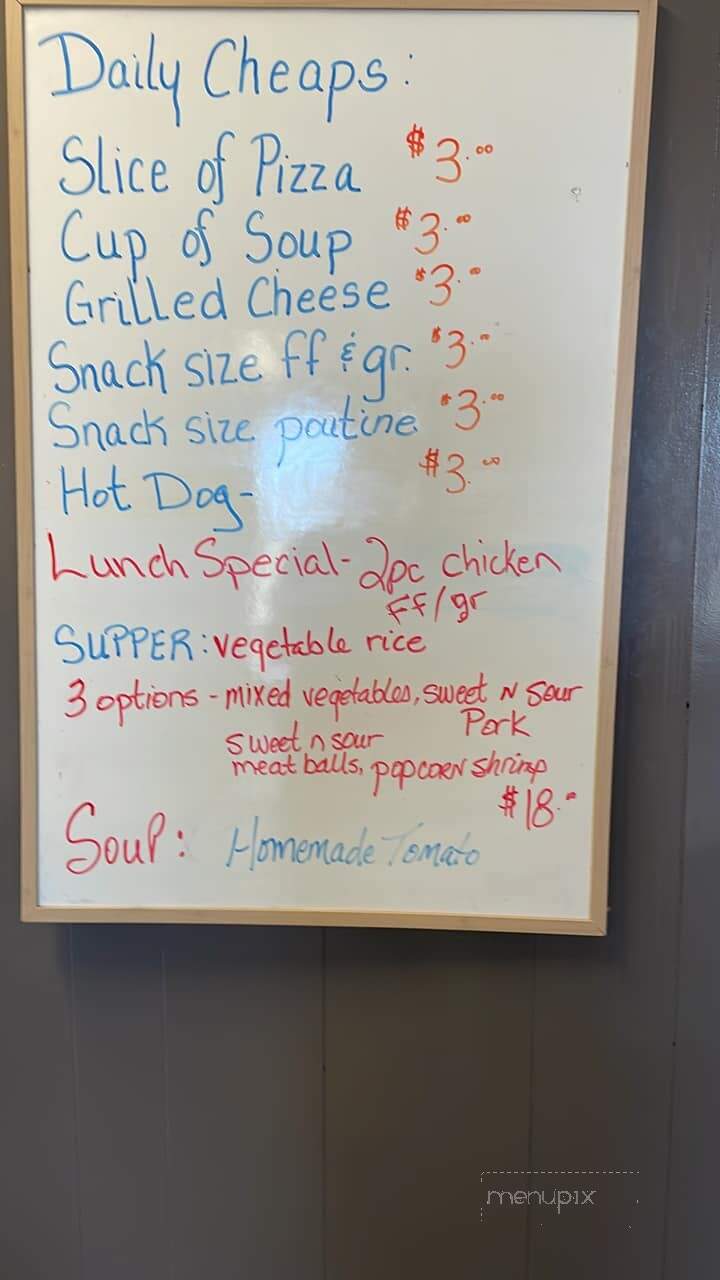 Daily Cheaps:
Slice of Pizza $3.00
Cup of Soup $3.00
Grilled Cheese $3.00
Snack size ff & gr. $3.00
Snack size poutine $3.00
Hot Dog- $3.00
Lunch Special- 2pc chicken
ff/gr
SUPPER: vegetable rice
3 options - mixed vegetables, sweet N Sour
Pork
sweet n sour
meat balls, popcorn shrimp
$18.00
Soup: Homemade Tomato
menupix